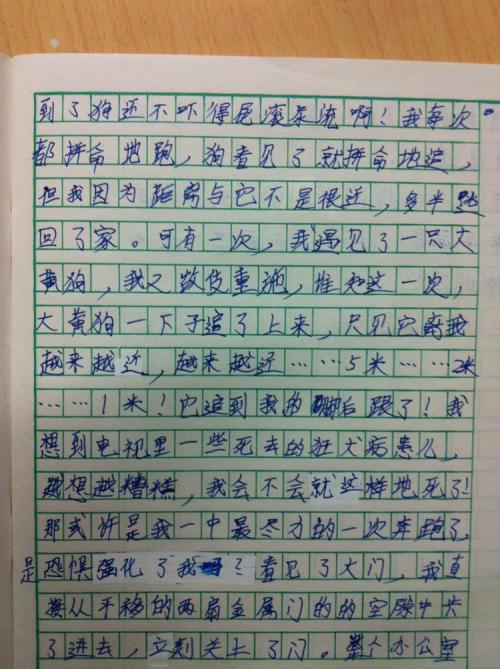 到了狗还不吓得屁滚尿流啊！我每次
都拼命地跑，狗看见了就拼命地追，
但我因为距离与它不是很近，多半跑
回了家。可有一次，我遇见了一只大
黄狗，我又故伎重施，谁知这一次，
大黄狗一下子追了上来，只见它离我
越来越近，越来越近……5米……2米
……1米！它追到我的脚后跟了！我
想到电视里一些死去的狂犬病患儿，
越想越糟糕，我会不会就这样地死了！
那或许是我一中最尽力的一次奔跑了，
是恐惧强化了我吗？看见了大门，我直
接从平移的两扇金属门的的空隙中
了进去，立刻关上了门。整个办公室